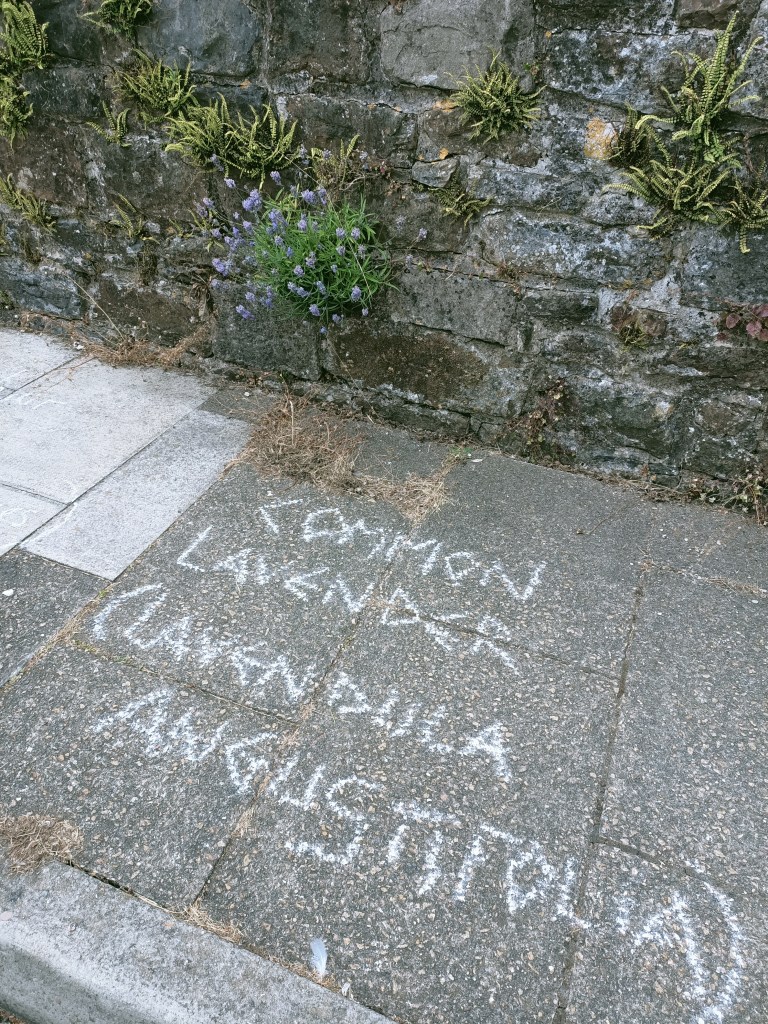 COMMON
LAVENDER
(LAVENDULA
ANGUSTIFOLIA)